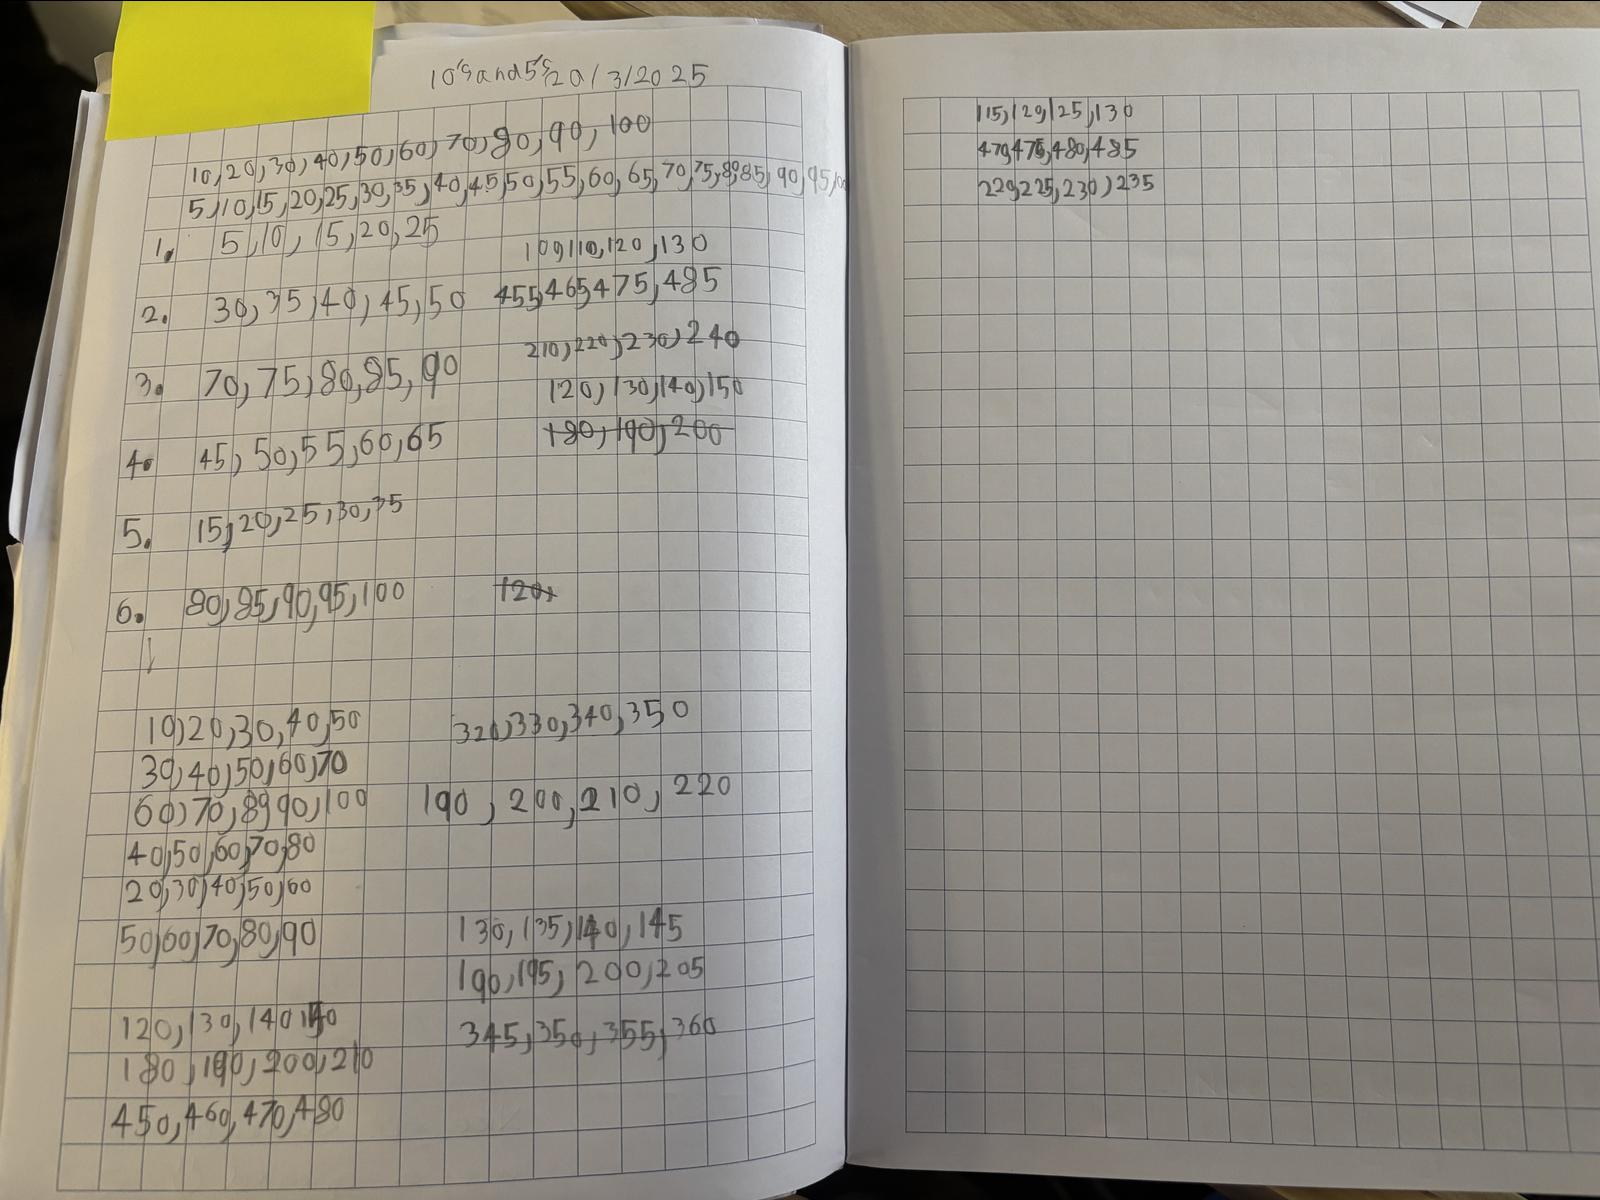 10's and 5's 20/3/2025
10,20,30,40,50,60,70,80,90,100
5,10,15,20,25,30,35,40,45,50,55,60,65,70,75,80,85,90,95,100
1. 5,10,15,20,25
2. 30,35,40,45,50
3. 70,75,80,85,90
4. 45,50,55,60,65
5. 15,20,25,30,35
6. 80,85,90,95,100
10,20,30,40,50
30,40,50,60,70
60,70,80,90,100
40,50,60,70,80
20,30,40,50,60
50,60,70,80,90
120,130,140,150
180,190,200,210
450,460,470,480
100,110,120,130
455,465,475,485
210,220,230,240
120,130,140,150
180,190,200
120,
320,330,340,350
190,200,210,220
130,135,140,145
190,195,200,205
345,350,355,360
115,120,125,130
470,475,480,485
220,225,230,235